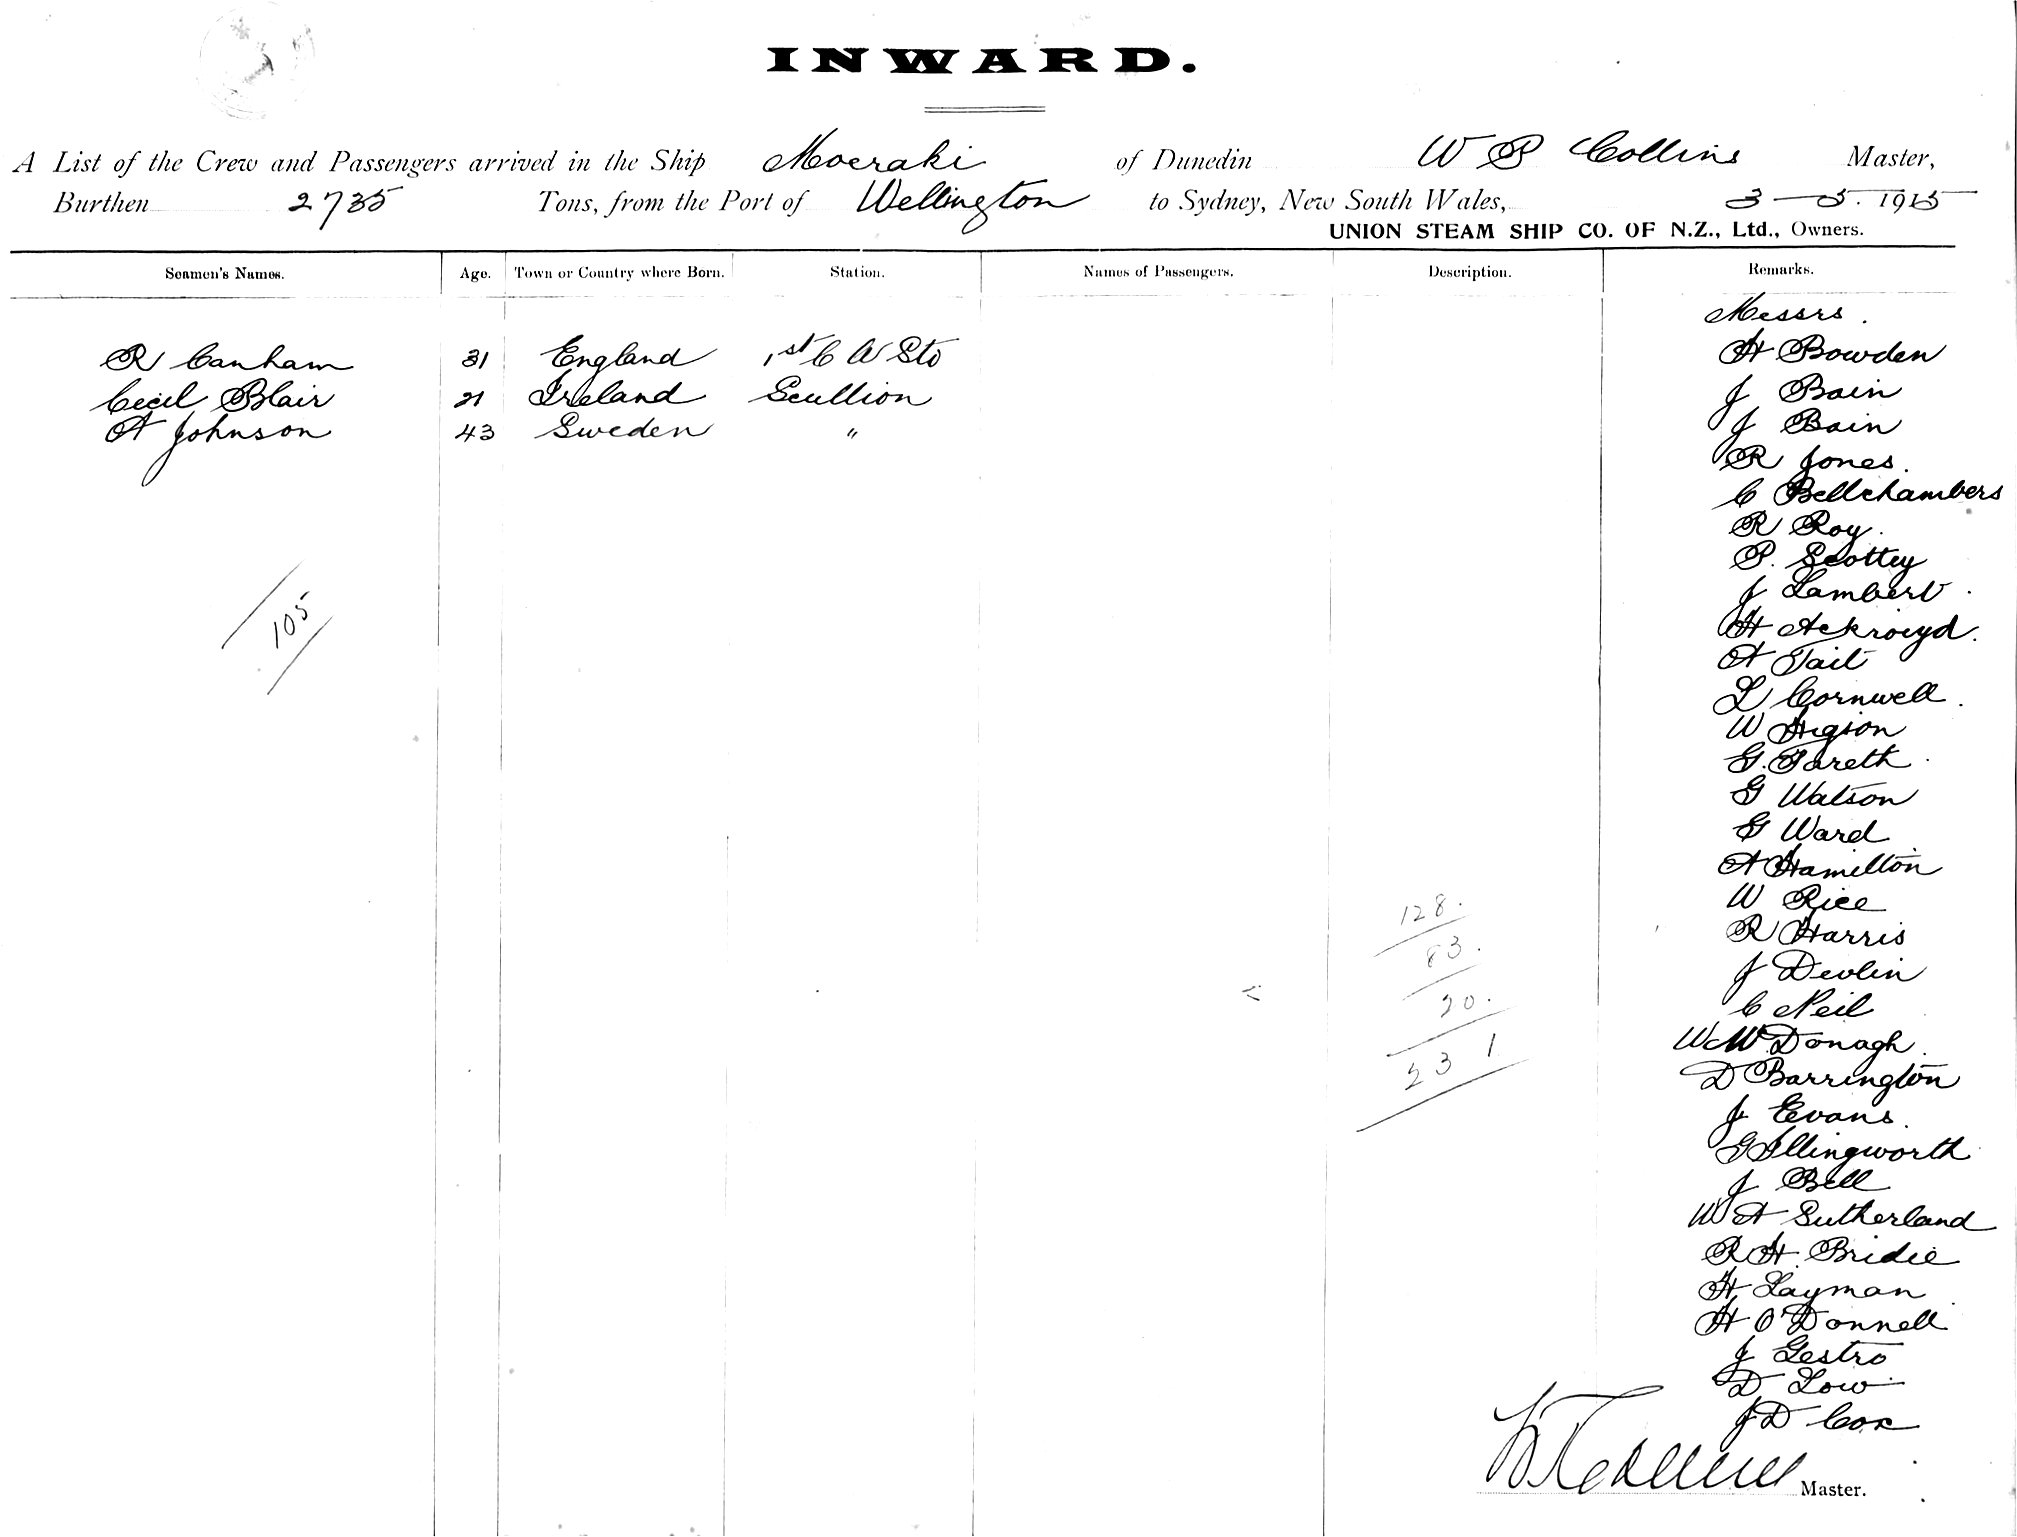 INWARD.
A List of the Crew and Passengers arrived in the Ship Moeraki of Dunedin W P Collins Master,
Burthen 2735 Tons, from the Port of Wellington to Sydney, New South Wales, 3 - 5. 1915
UNION STEAM SHIP CO. OF N.Z., Ltd., Owners.
Seamen's Names. Age. Town or Country where Born. Station. Names of Passengers. Description. Remarks.
Messrs.
R Canham 31 England 1st C W Sto
H Bowden
Cecil Blair 21 Ireland Scullion
J Bain
A Johnson 43 Sweden "
J Bain
R Jones.
C Bellchambers
R Roy.
P. Scottey
J Lambert.
105
H Ackroyd.
A Tait
L Cornwell.
W Higson
G. Jareth.
G Watson
G Ward
A Hamilton
W Rice
128.
R Harris
83.
J Devlin
20.
C Neil
231
W McDonagh.
D Barrington
J Evans.
G Illingworth
J Bell
W A Sutherland
R H Bridie
H Layman
H O'Donnell
J Gestro
D Low
J D Cox
Master.